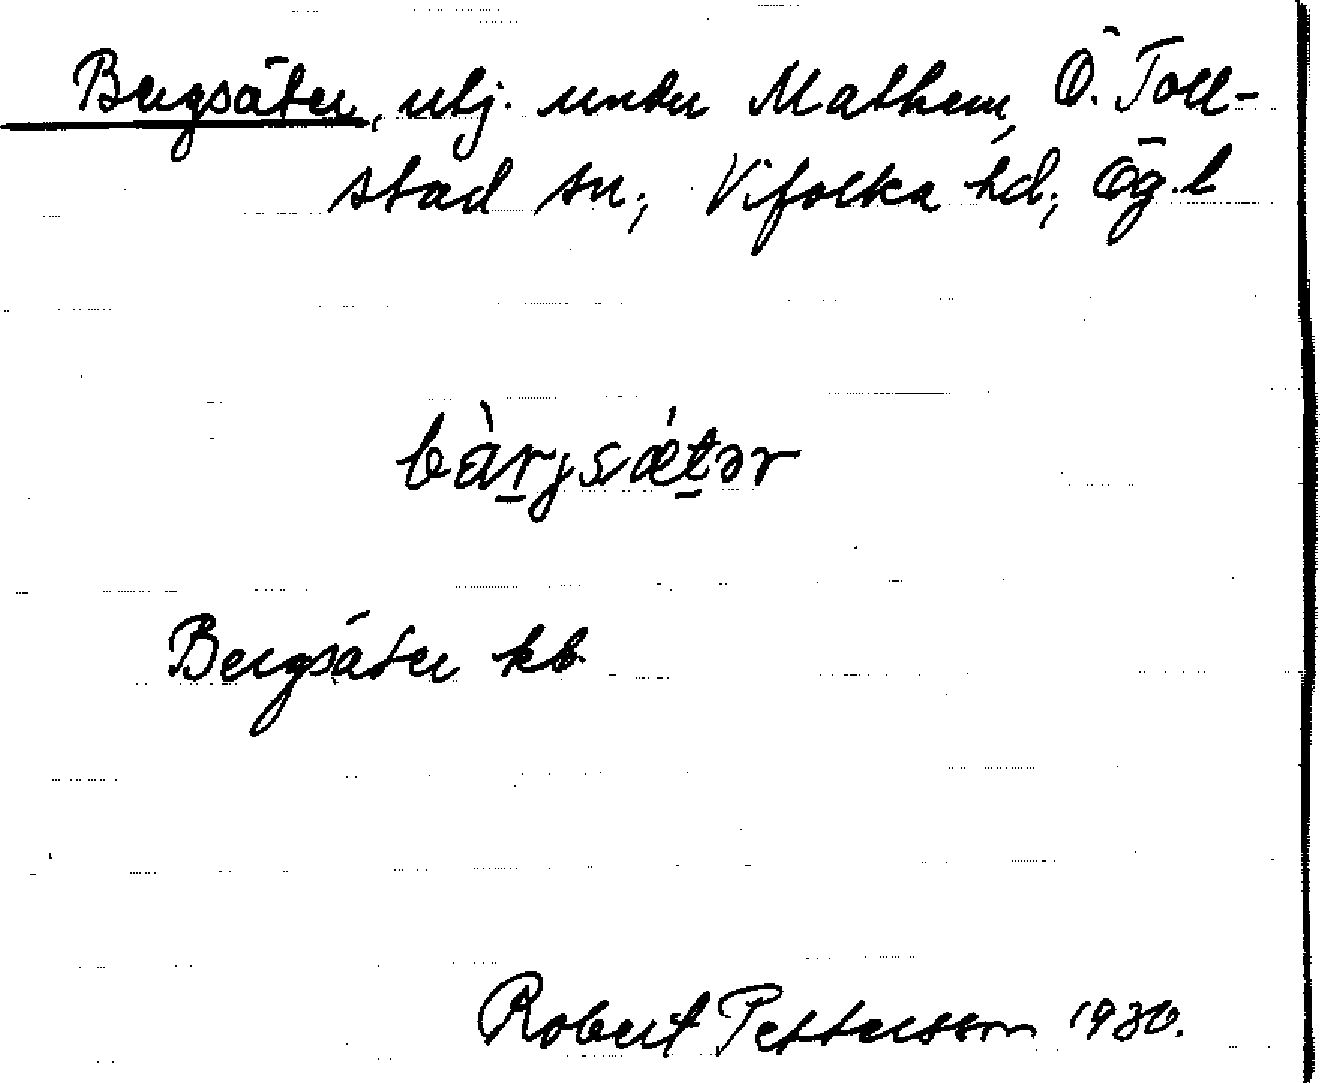 Bergsäter, utj. under Mathem, Ö. Toll-
stad sn, Vifolka hd, Ög. l
bàrjsǽtər
Bergsäter kb.
Robert Pettersson 1930.